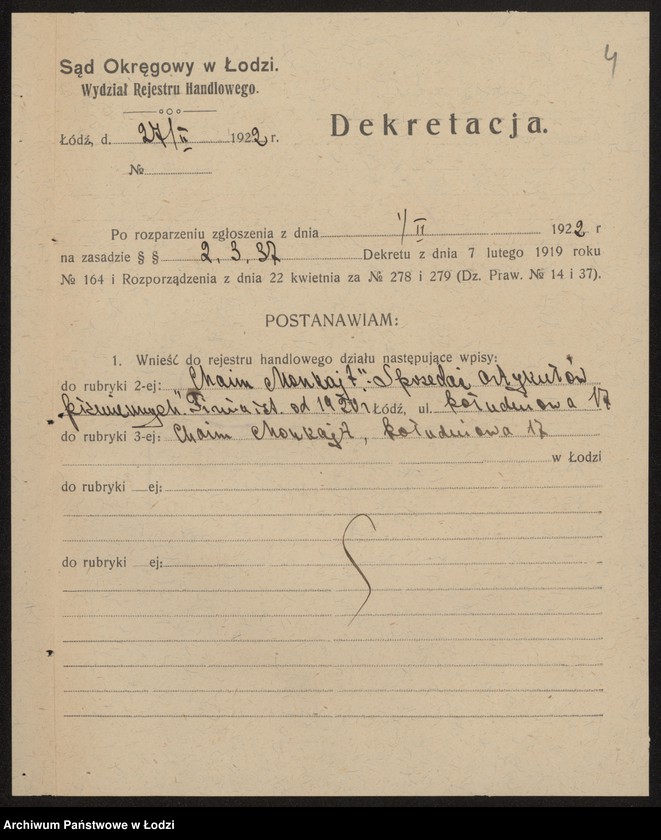 4
Sąd Okręgowy w Łodzi.
Wydział Rejestru Handlowego.
Dekretacja.
Łódź, d. 27/II 1922 r.
№
Po rozparzeniu zgłoszenia z dnia 1/II 1922 r
na zasadzie § § 2. 3. 37 Dekretu z dnia 7 lutego 1919 roku
№ 164 i Rozporządzenia z dnia 22 kwietnia za № 278 i 279 (Dz. Praw. № 14 i 37).
POSTANAWIAM:
1. Wnieść do rejestru handlowego działu następujące wpisy:
do rubryki 2-ej: „Chaim Monkajt". Sprzedaż artykułów
piśmiennych". Firma ist. od 1920 r Łódź, ul. Południowa 17
do rubryki 3-ej: Chaim Monkajt, Południowa 17
w Łodzi
do rubryki ej:
do rubryki ej:
Archiwum Państwowe w Łodzi